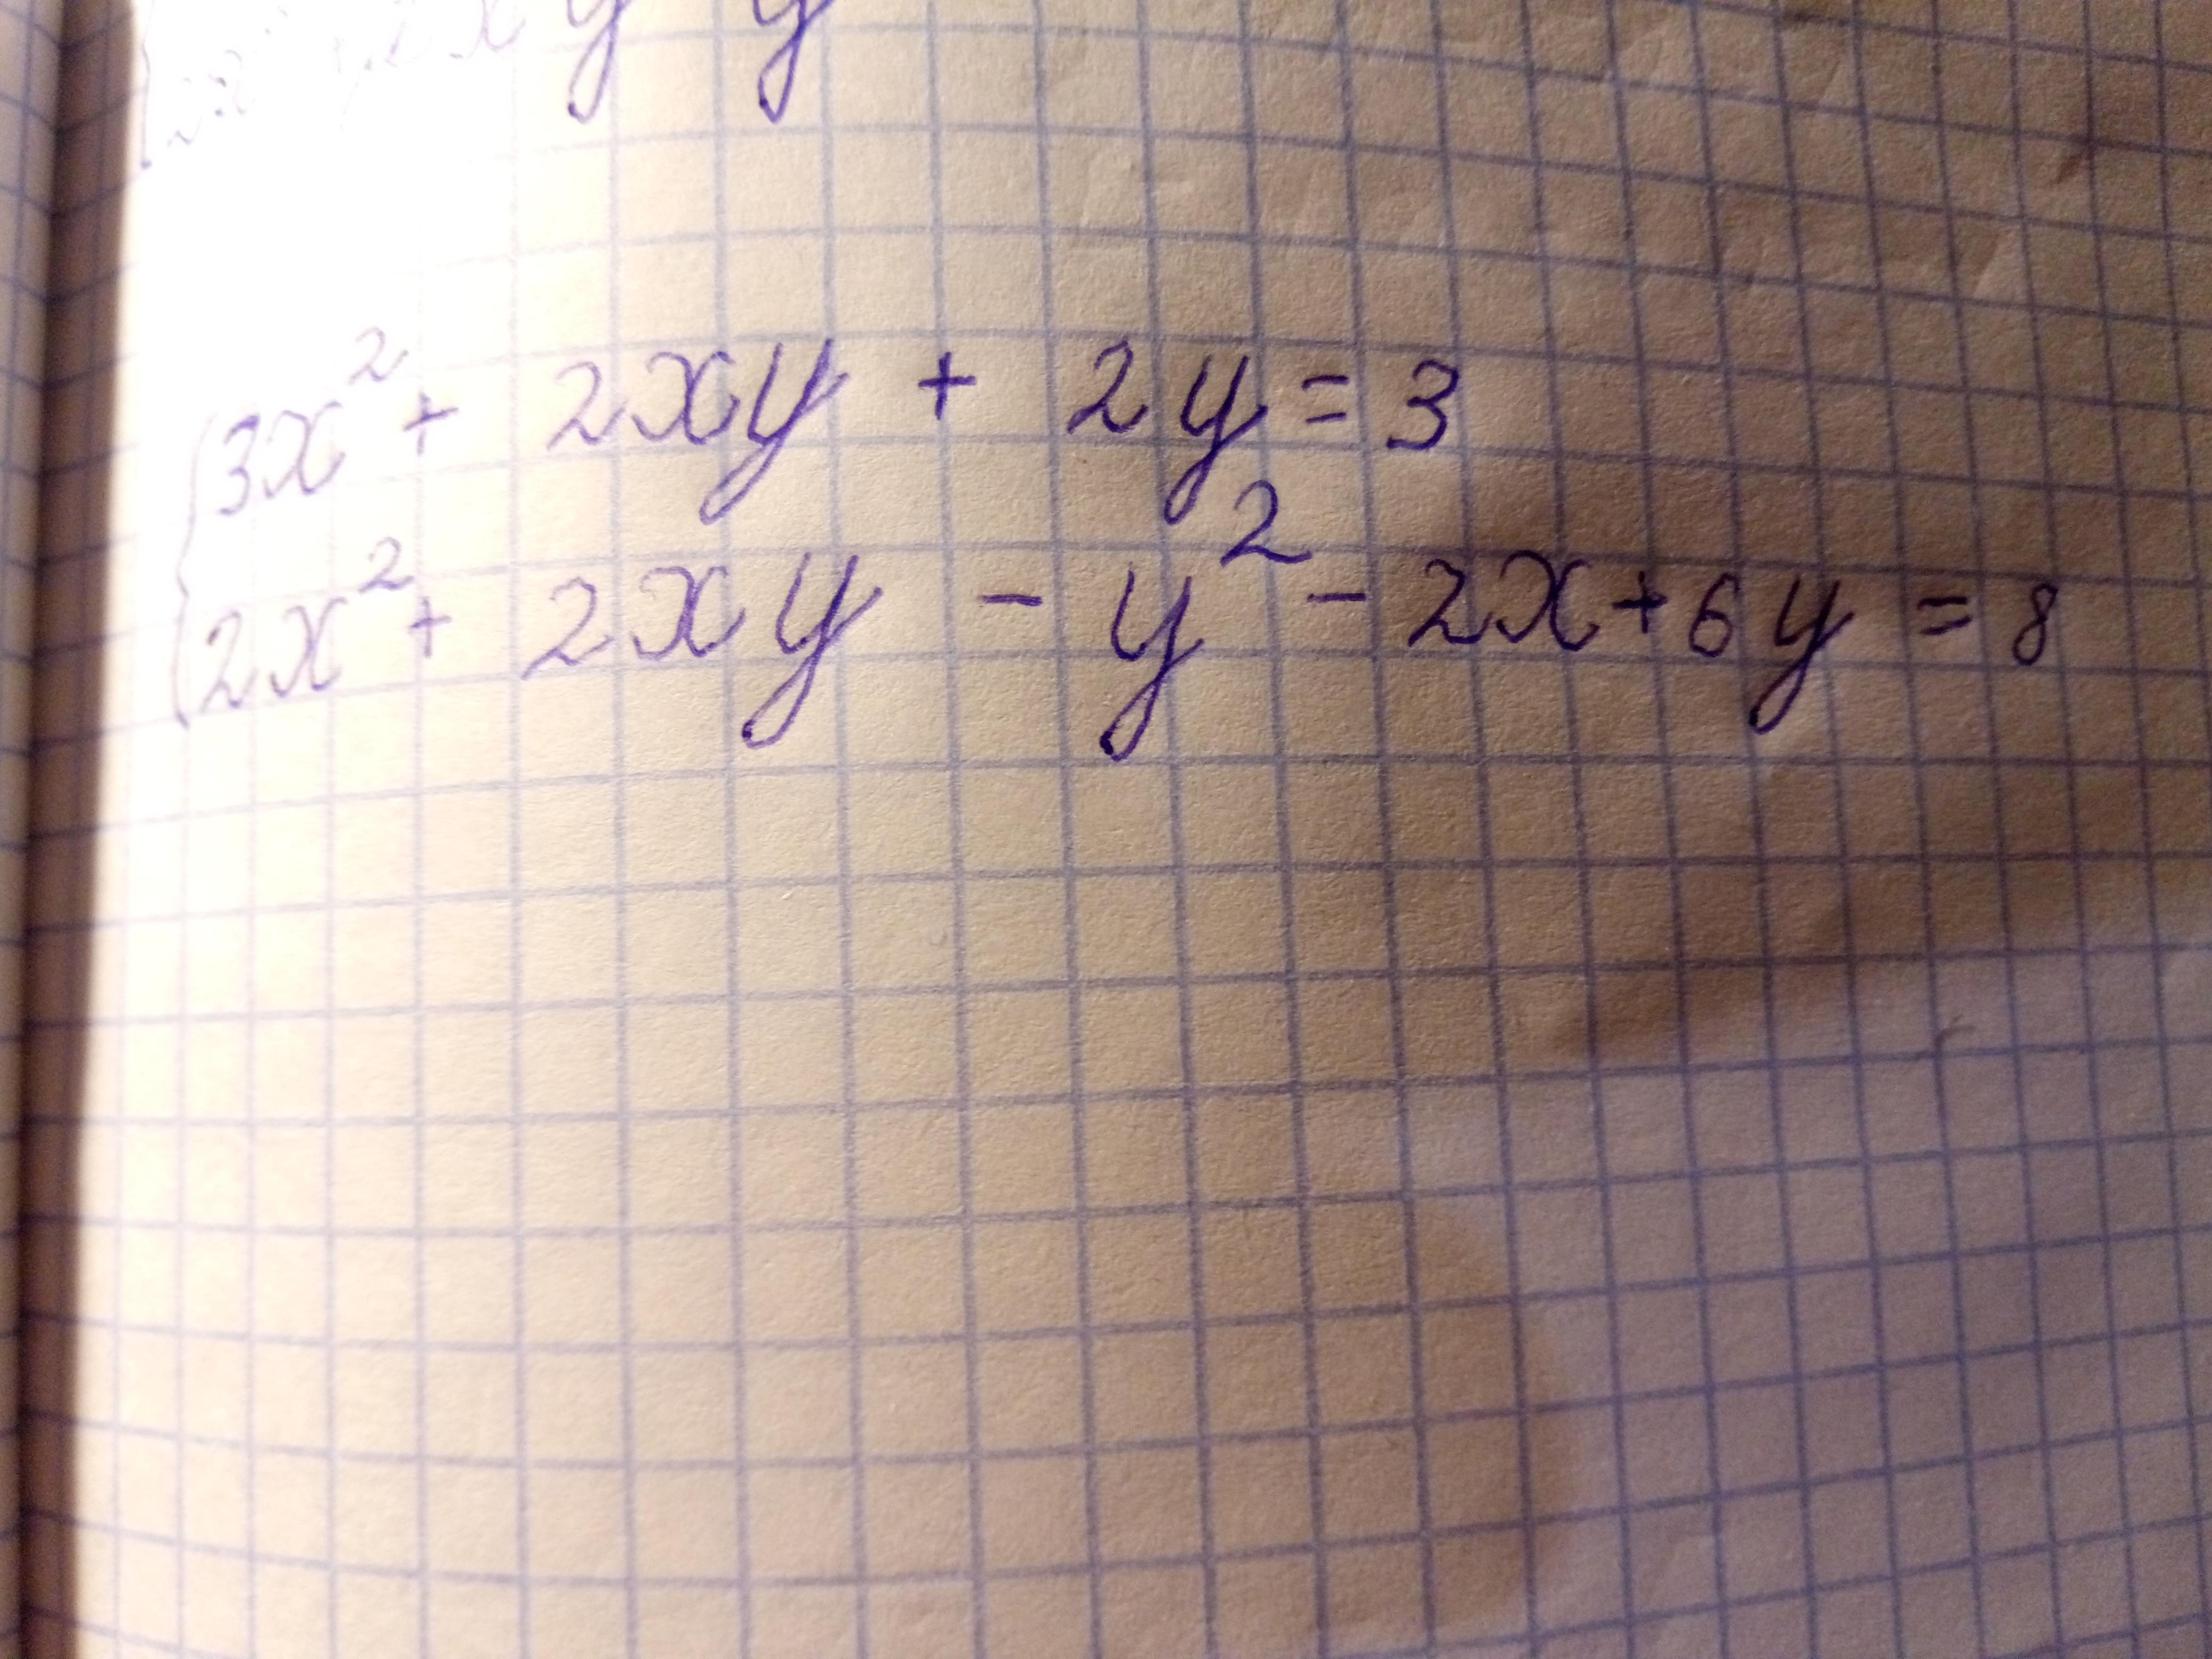 3x² + 2xy + 2y = 3
2x² + 2xy - y² - 2x + 6y = 8